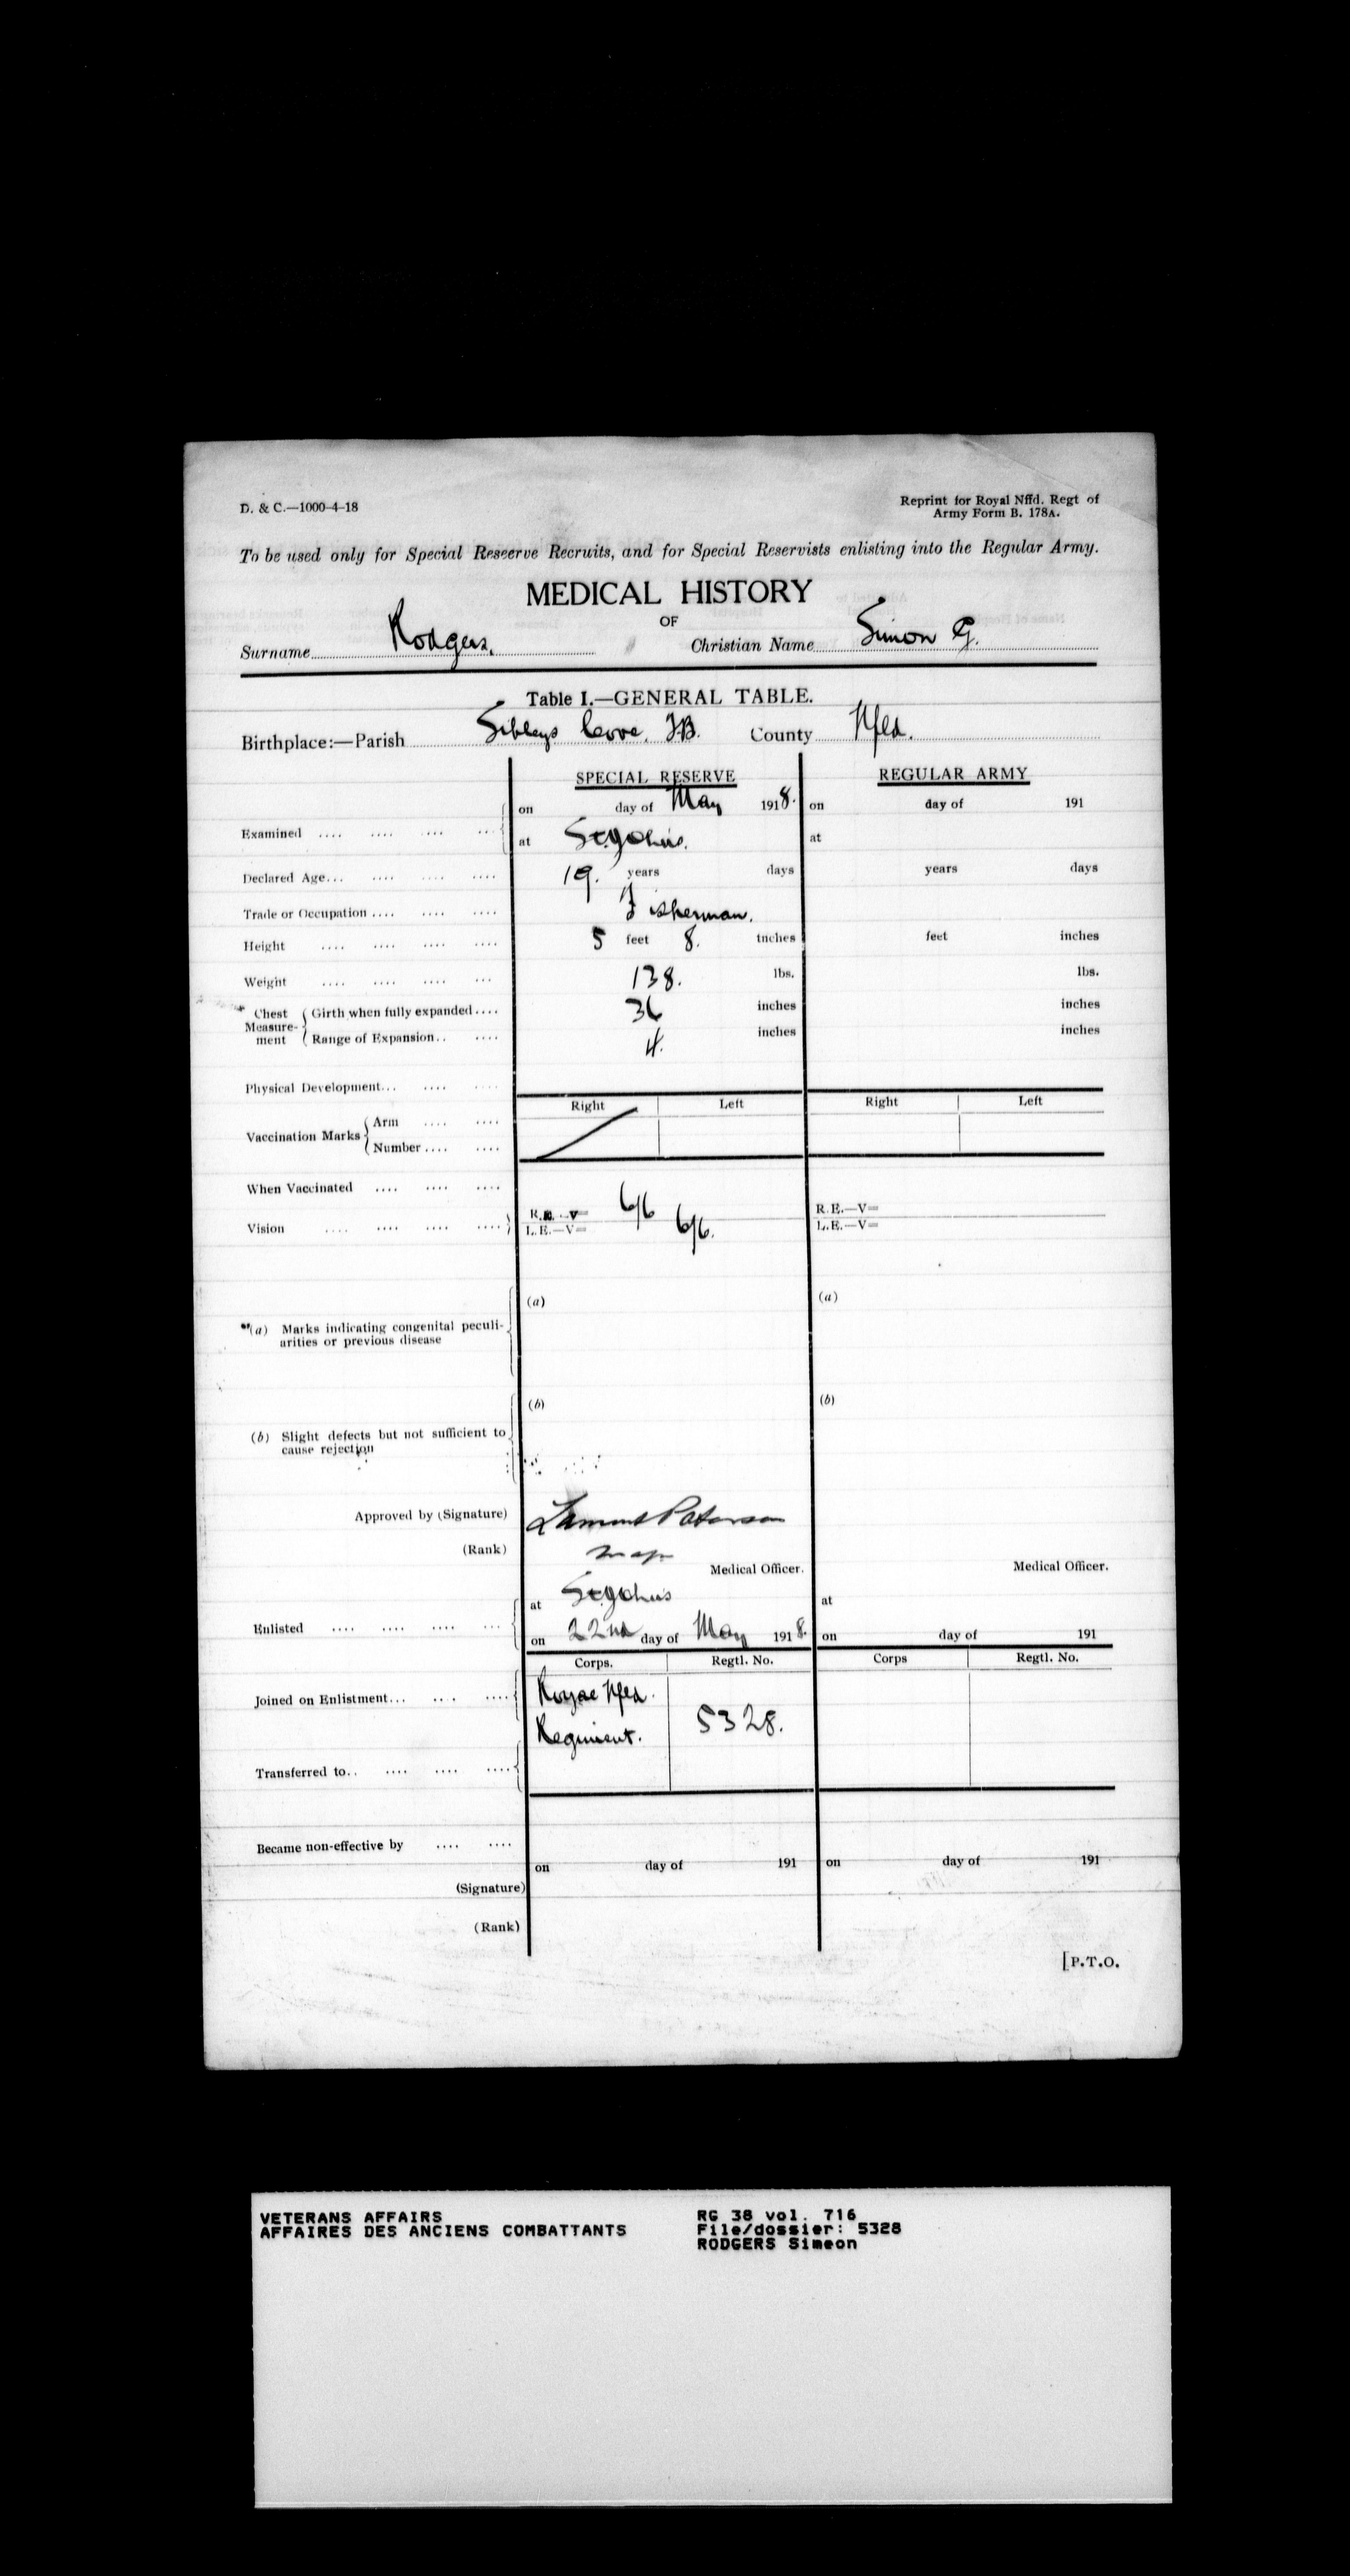 D. & C.—1000-4-18
Reprint for Royal Nffd. Regt of
Army Form B. 178A.
To be used only for Special Reserve Recruits, and for Special Reservists enlisting into the Regular Army.
MEDICAL HISTORY
OF
Surname Rodgers. Christian Name Simon G.
Table I.—GENERAL TABLE.
Birthplace:—Parish Sibleys Cove. T.B. County Nfld.
SPECIAL RESERVE REGULAR ARMY
on day of May 1918. on day of 191
Examined .... .... .... ...
at St. Johns. at
Declared Age... .... .... .... 19. years days years days
Trade or Occupation .... .... .... Fisherman.
Height .... .... .... .... 5 feet 8. inches feet inches
Weight .... .... .... ... 138. lbs. lbs.
Chest Measure-ment Girth when fully expanded .... 36 inches inches
Range of Expansion.. .... 4. inches inches
Physical Development... .... ....
Right Left Right Left
Vaccination Marks Arm .... ....
Number .... ....
When Vaccinated .... .... ....
Vision .... .... .... ....
R.E.—V= 6/6 R.E.—V=
L.E.—V= 6/6. L.E.—V=
(a) (a)
(a) Marks indicating congenital peculi-
arities or previous disease
(b) (b)
(b) Slight defects but not sufficient to
cause rejection
Approved by (Signature) Lamont Paterson
(Rank) Maj
Medical Officer. Medical Officer.
at St Johns at
Enlisted .... .... .... ...
on 22nd day of May 1918. on day of 191
Corps. Regtl. No. Corps Regtl. No.
Joined on Enlistment... .... .... Royal Nfld.
Regiment. 5328.
Transferred to.. .... .... ....
Became non-effective by .... ....
on day of 191 on day of 191
(Signature)
(Rank)
[P.T.O.
VETERANS AFFAIRS RG 38 vol. 716
AFFAIRES DES ANCIENS COMBATTANTS File/dossier: 5328
RODGERS Simeon